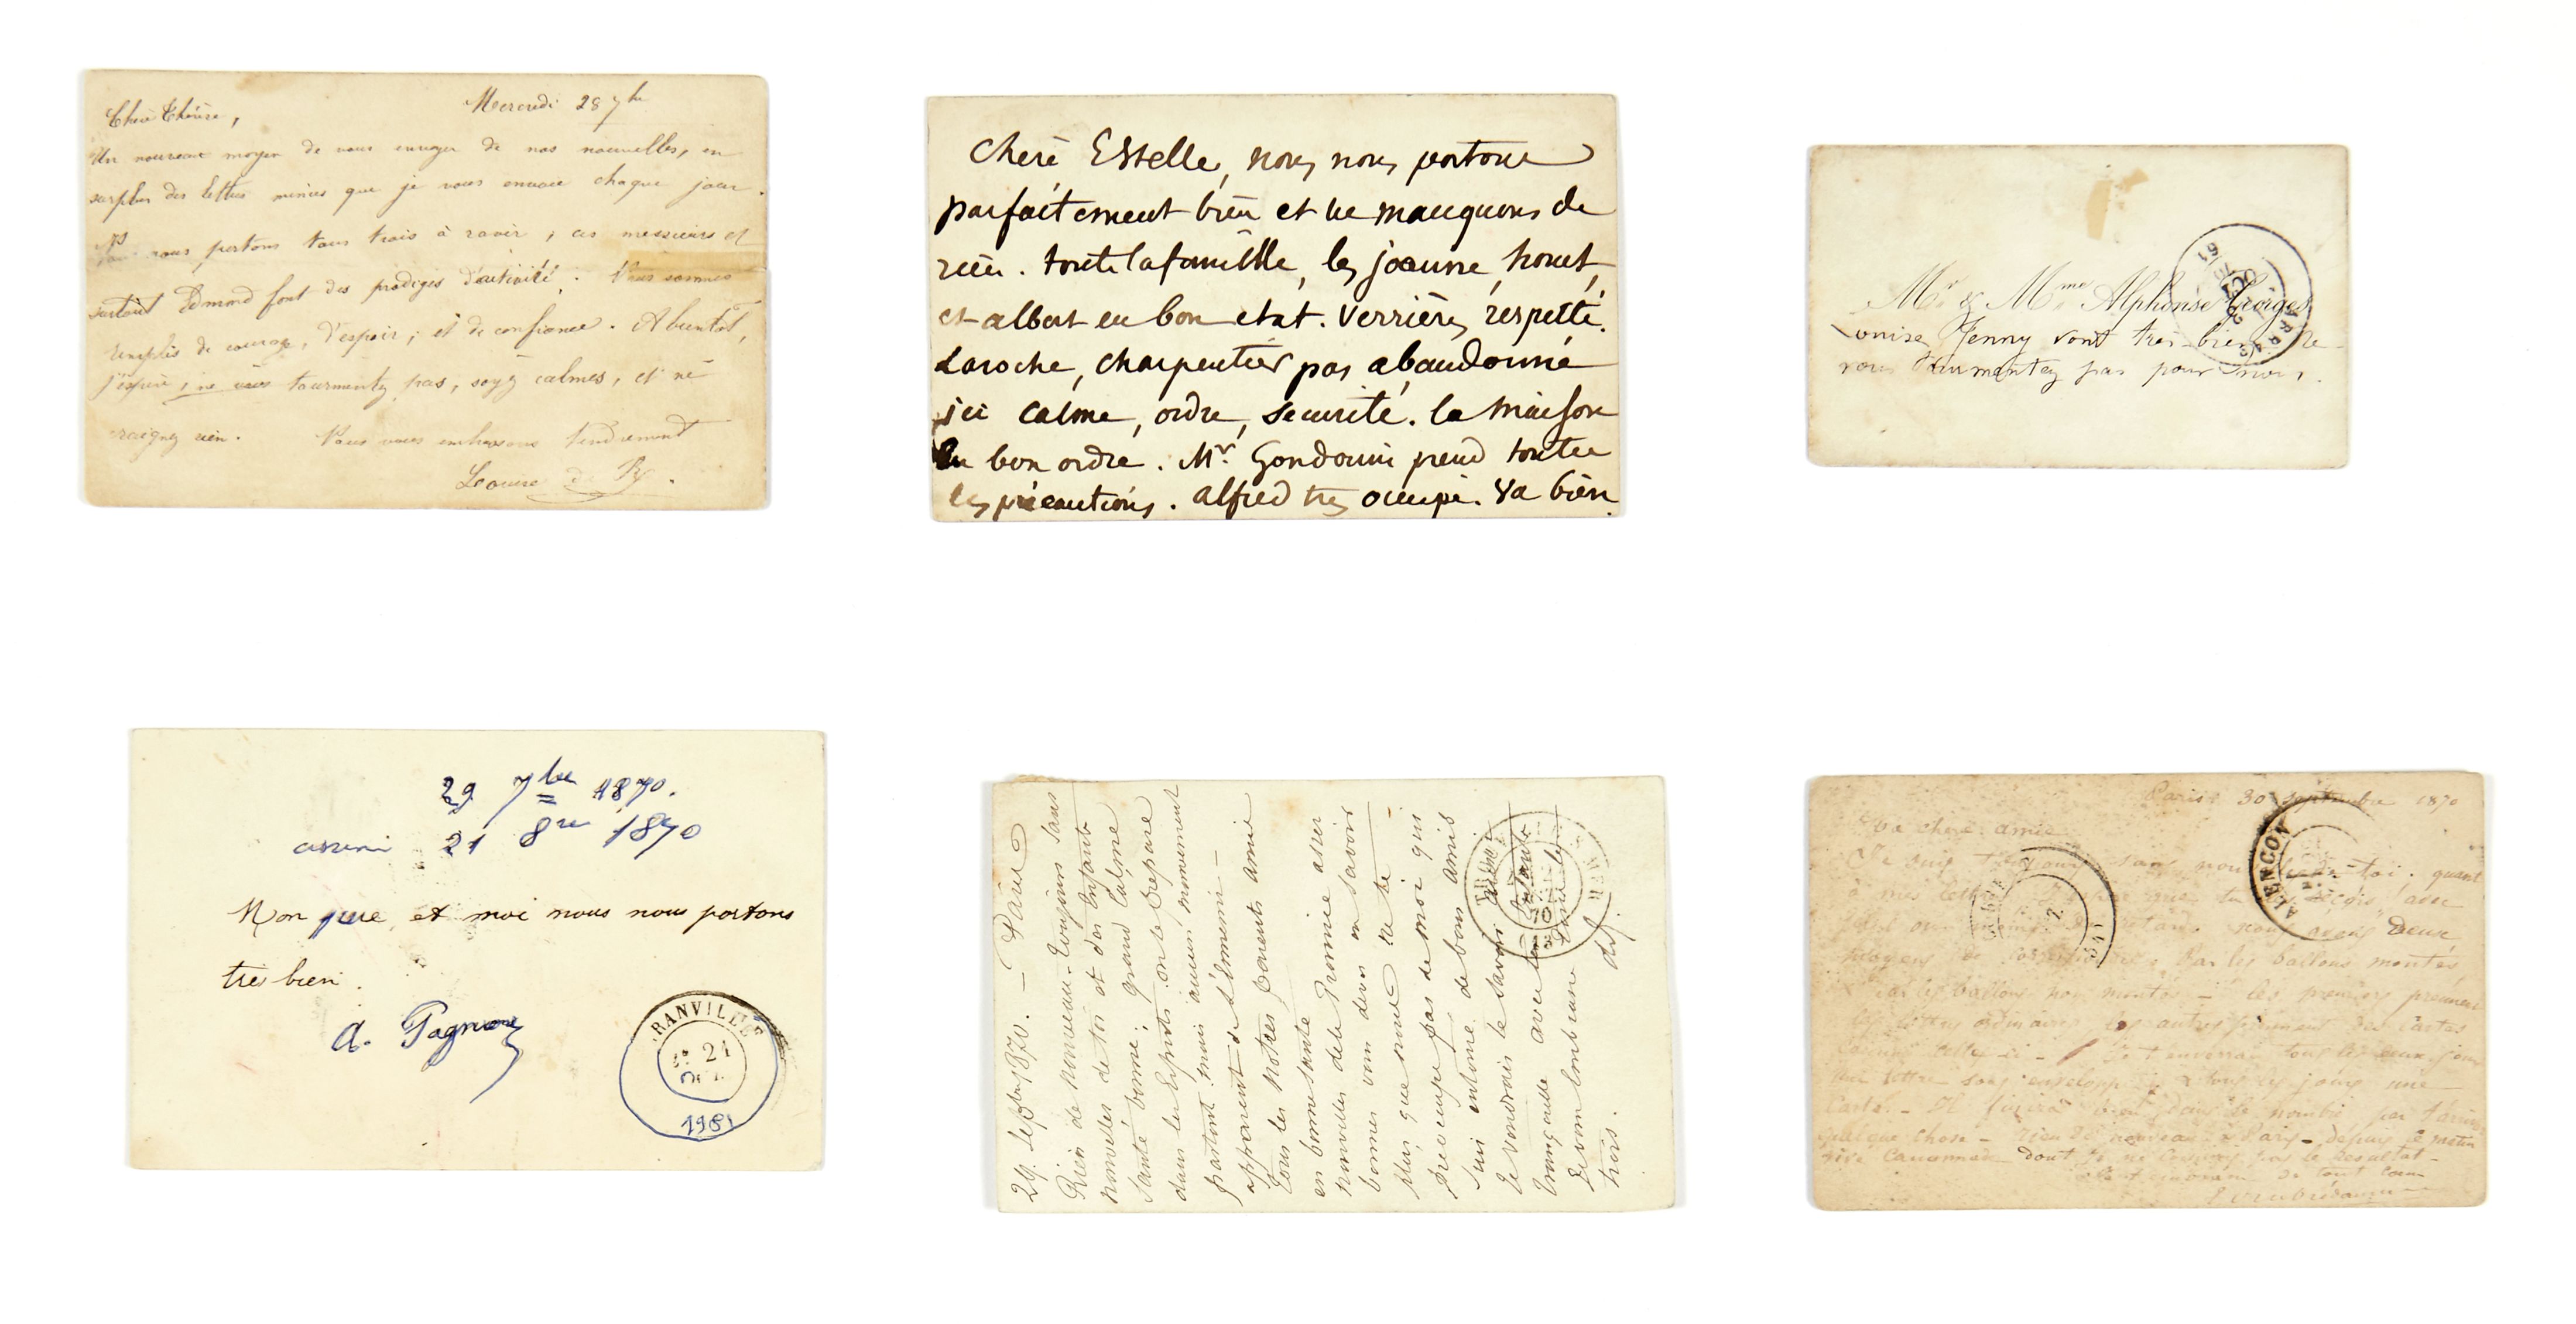 Mercredi 28 7bre
Chère Thérèse,
Un nouveau moyen de vous envoyer de nos nouvelles, en
surplus des lettres minces que je vous envoie chaque jour.
nous portons tous trois à ravir ; ces messieurs et
surtout Edmond font des prodiges d'activité. Nous sommes
remplis de courage, d'espoir, et de confiance. A bientôt,
j'espère, ne vous tourmentez pas, soyez calmes, et ne
craignez rien. Nous vous embrassons tendrement
Chère Estelle, nous nous portons
parfaitement bien et ne manquons de
rien. toute la famille, les jeaunne, honet,
et albert en bon etat. Verrières respecté.
Laroche, charpentier pas abandonné
ici calme, ordre, sécurité. la maison
en bon ordre. Mr. Gondouin prend toutes
les précautions. alfred tres occupé. va bien
Mr & Mme Alphonse Georges
Louise, Jenny vont très bien. Ne
vous tourmentez pas pour nous.
29 7bre 1870.
21 8re 1870
Mon père, et moi nous nous portons
très bien.
A. Pagnon
RANVILLE
21
29 septbre 1870. – Paris
Rien de nouveau. Toujours sans
nouvelles de toi et des Enfants
Santé bonne; grand calme
dans les Esprits. on se prépare
partout mais aucun mouvement
apparent de l'Ennemi –
Tous les notres parents amis
en bonne santé
nouvelles de la Province assez
bonnes vous devez en savoir
plus que nous. Ne te
préoccupe pas de moi qui
suis entouré de bons amis
Je voudrais te savoir aussi
tranquille avec les Enfants
trois.
Paris 30 septembre 1870
Ma chère amie
Je suis toujours sans nouvelles de toi. quant
à mes lettres que tu reçois avec
plus ou moins de retard. nous avons deux
moyens de correspondre. Par les ballons montés
et par les ballons non montés – les premiers prennent
les lettres ordinaires les autres prennent des cartes
comme celle ci – Je t'enverrai tous les deux jours
une lettre sous enveloppe et tous les jours une
carte. – Il finira bien dans le nombre par t'arriver
quelque chose – rien de nouveau à Paris – depuis ce matin
vive canonnade dont je ne connais pas le résultat –
de tout coeur
ALENCON